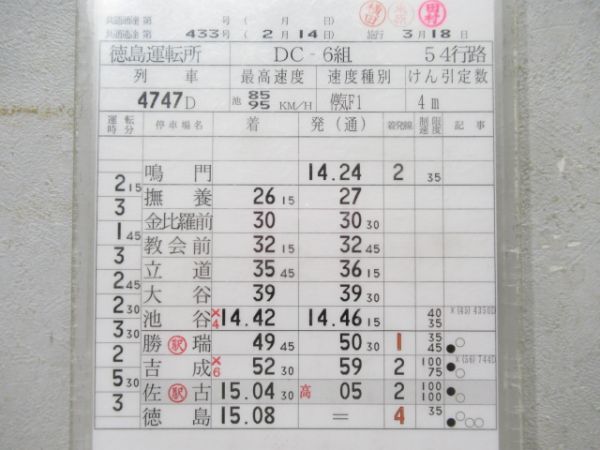 共通通達 第 号 ( 月 日)
共通通達 第 433 号 ( 2 月 14 日) 施行 3 月 18 日
徳島運転所 DC - 6組 54行路
列車 最高速度 速度種別 けん引定数
4747D 池 85 95 KM/H 停気F1 4 m
運転時分 停車場名 着 発(通) 着発線 制限速度 記事
鳴門 14.24 2 35
2 15
撫養 26 15 27
3
金比羅前 30 30 30
1 45
教会前 32 15 32 45
3
立道 35 45 36 15
2 45
大谷 39 39 30
2 30
池谷 ×4 14.42 14.46 15 40 35 ×(45) 4350D
3 30
勝瑞 駅 49 45 50 30 1 35 45 ●○
2
吉成 ×6 52 30 59 2 100 75 ×(56) 744D ●○
5 30
佐古 駅 15.04 30 高 05 2 100 100 ●○
3
徳島 15.08 = 4 35 ●○○○